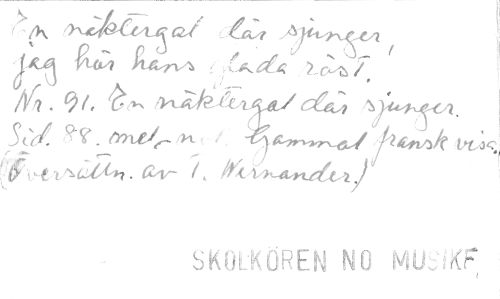 En näktergal där sjunger,
jag hör hans glada röst.
Nr. 91. En näktergal där sjunger.
Sid. 88. mel. not. Gammal fransk visa.
(Översättn. av T. Wernander.)
SKOLKÖREN NO MUSIKF